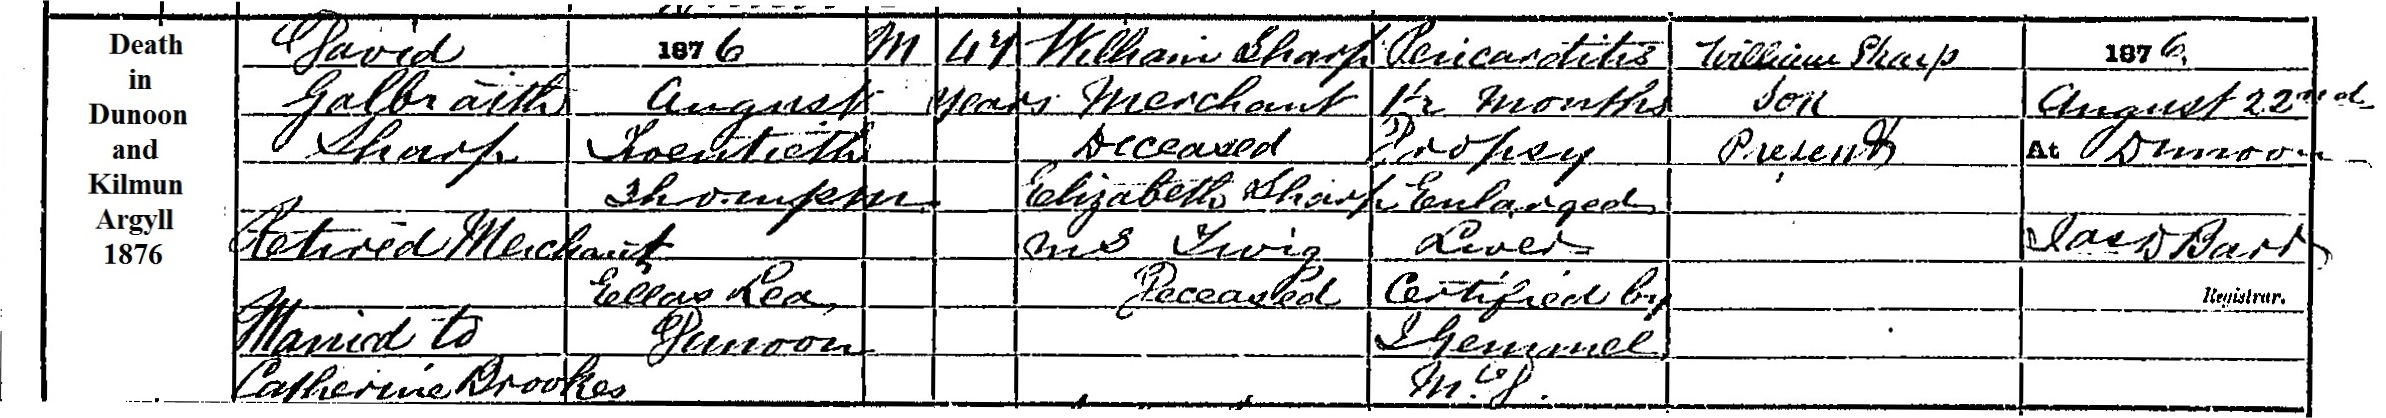 Death
in
Dunoon
and
Kilmun
Argyll
1876
David
Galbraith
Sharp
Retired Merchant
Married to
Catherine Brookes
1876
August
Twentieth
Ellas Lea
Dunoon
M
47
years
William Sharp
Merchant
Deceased
Elizabeth Sharp
MS Twig
Deceased
Pericarditis
months
Dropsy
Enlarged
Liver
Certified by
Gemmel
William Sharp
Son
Present
1876
August 22nd
At Dunoon
Barr
Registrar.